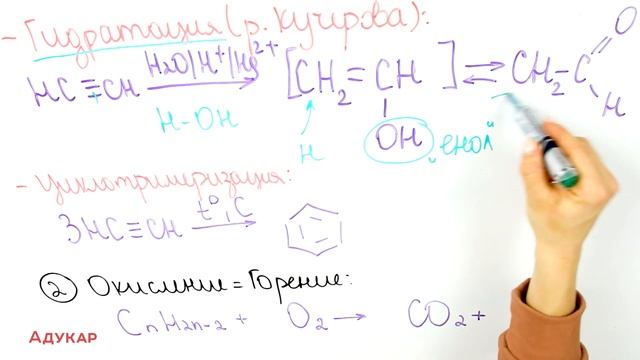 - Гидратация (р. Кучерова):
HC≡CH H2O/H+/Hg2+ [CH2=CH OH] ⇌ CH2-C O H
H-OH
H "енол"
- Циклотримеризация:
3HC≡CH t°, C →
② Окисление = Горение:
CnH2n-2 + O2 → CO2 +
АДУКАР